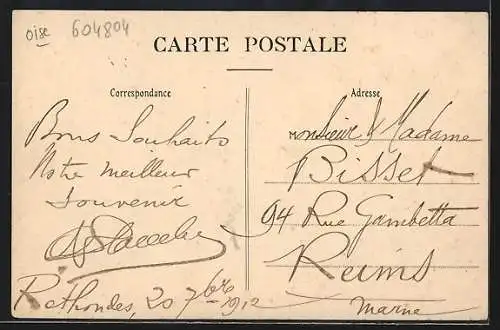 Oise 604804
CARTE POSTALE
Correspondance
Adresse
Bons Souhaits
Notre meilleur
Souvenir
Rethondes, 20 7bre 1912
Monsieur & Madame
Bisset
94 Rue Gambetta
Reims
Marne